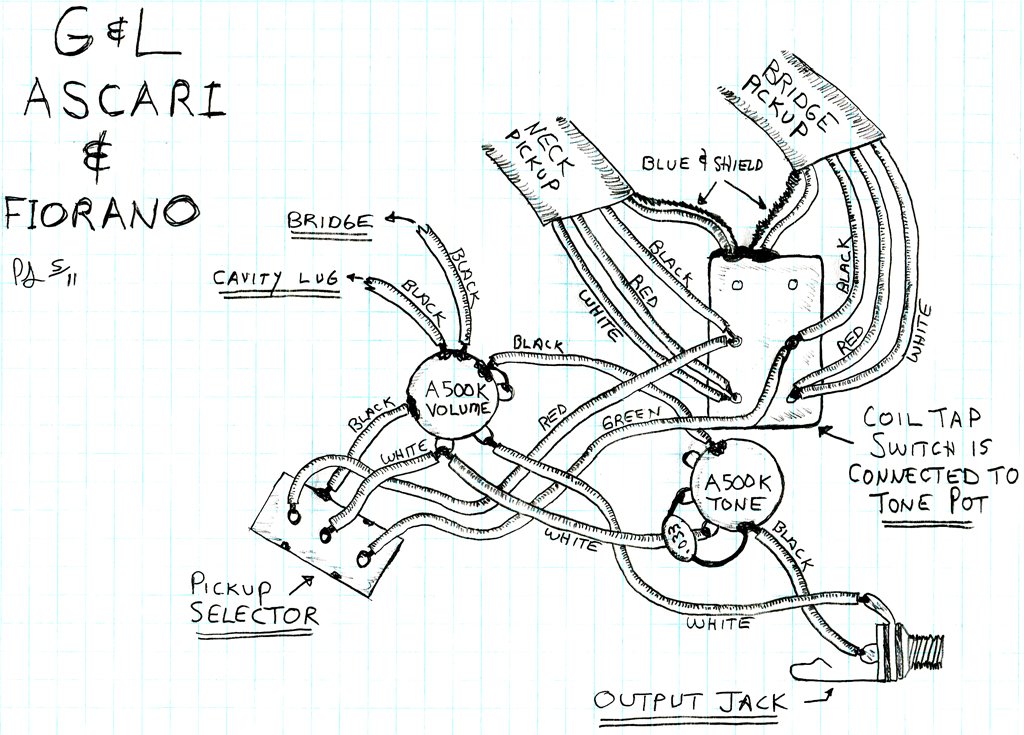 G & L
ASCARI
&
FIORANO
5/11
BRIDGE
CAVITY LUG
BLACK
BLACK
NECK
PICKUP
BRIDGE
PICKUP
BLUE & SHIELD
BLACK
RED
WHITE
BLACK
RED
WHITE
BLACK
A500K
VOLUME
BLACK
WHITE
RED
GREEN
A500K
TONE
.033
WHITE
BLACK
WHITE
COIL TAP
SWITCH IS
CONNECTED TO
TONE POT
PICKUP
SELECTOR
OUTPUT JACK